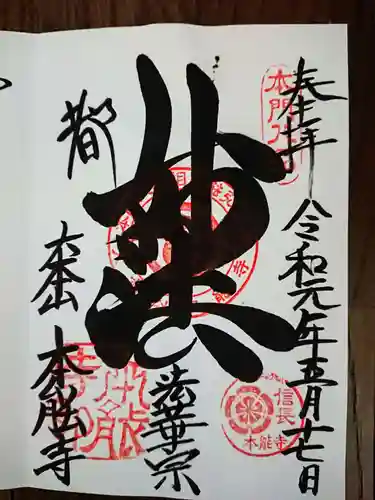 奉拝
令和元年五月廿七日
妙法
法華宗
都
大本山
本能寺
本門八品
信長
本能寺